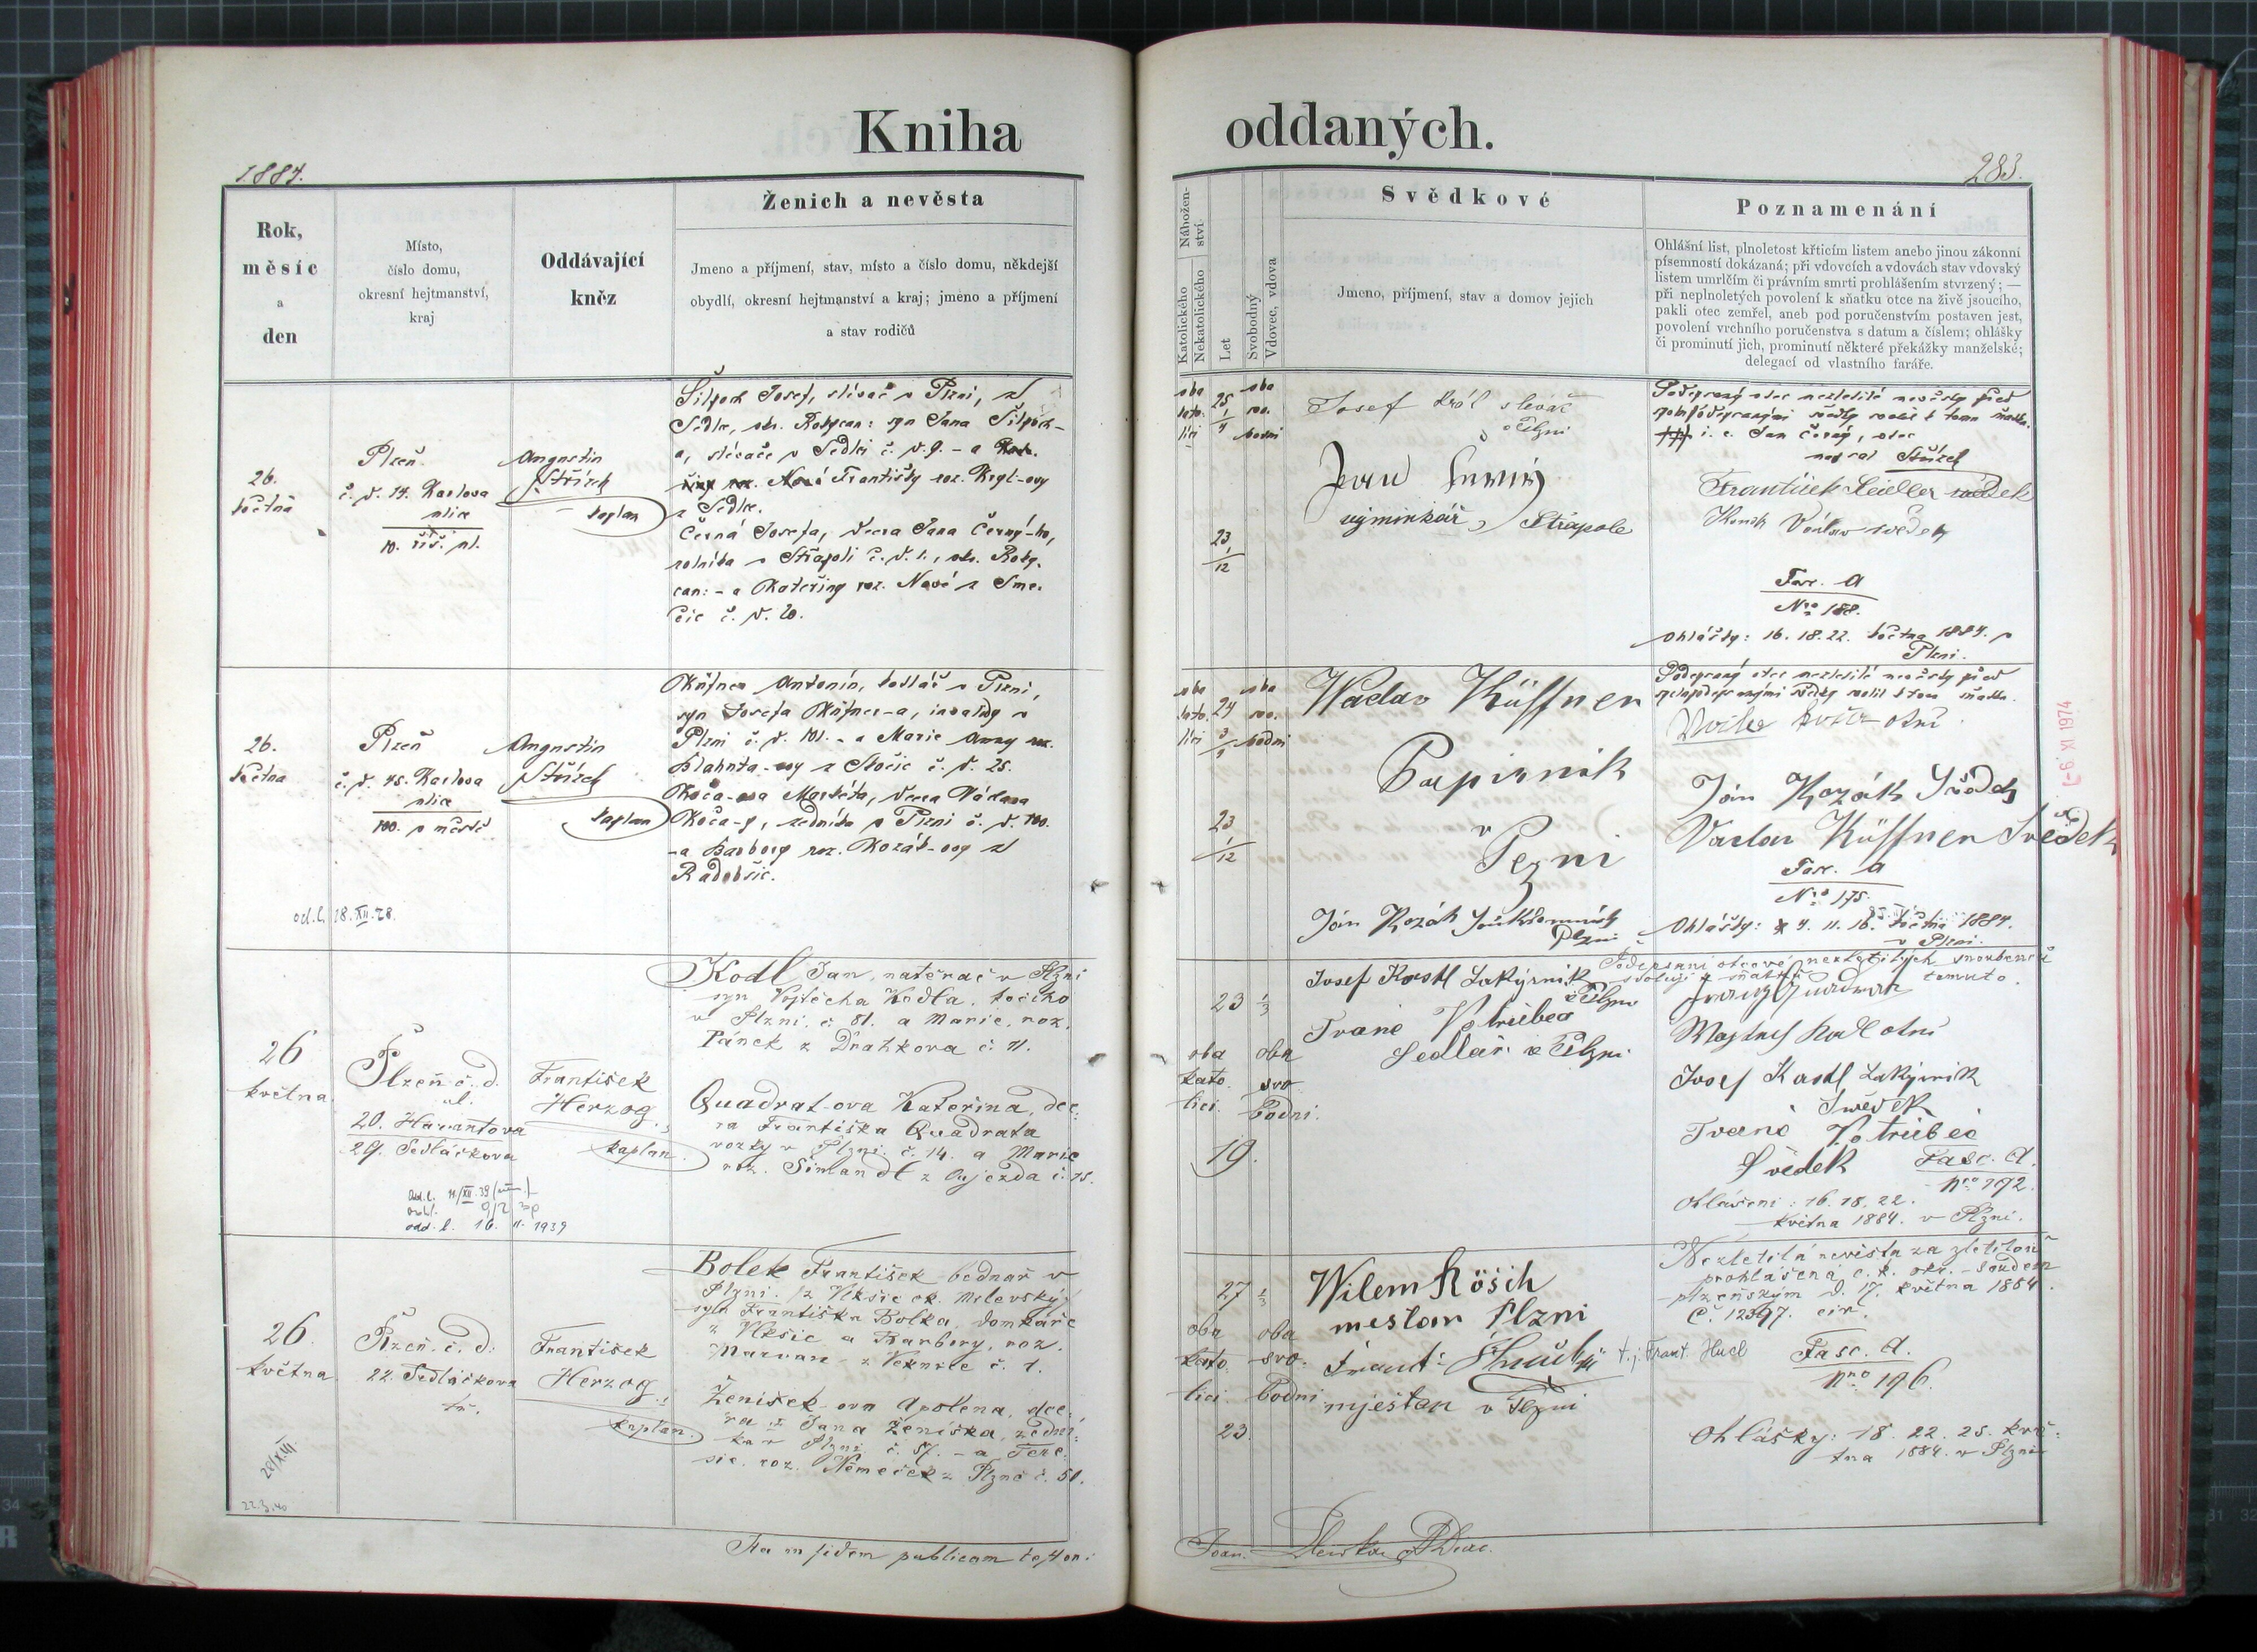 Kniha oddaných.
1884.
283.
Rok,
měsíc
a
den
Místo,
číslo domu,
okresní hejtmanství,
kraj
Oddávající
kněz
Ženich a nevěsta
Jmeno a příjmení, stav, místo a číslo domu, někdejší
obydlí, okresní hejtmanství a kraj; jméno a příjmení
a stav rodičů
Nábožen-
ství
Katolického
Nekatolického
Let
Svobodný
Vdovec, vdova
Svědkové
Jmeno, příjmení, stav a domov jejich
Poznamenání
Ohlášní list, plnoletost křticím listem anebo jinou zákonní
písemností dokázaná; při vdovcích a vdovách stav vdovský
listem umrlčím či právním smrti prohlášením stvrzený; —
při neplnoletých povolení k sňatku otce na živě jsoucího,
pakli otec zemřel, aneb pod poručenstvím postaven jest,
povolení vrchního poručenstva s datum a číslem; ohlášky
či prominutí jich, prominutí některé překážky manželské;
delegací od vlastního faráře.
26.
května
Plzeň
č. d. 14. Karlova
ulice
10. říš. př.
Augustin
Střízek
kaplan
Josef, slévač v Plzni, z
Sedlec, okr. Rokycan: syn Jana
a, slévače v Sedlci č. d. 9. - a
Nové Františky roz.
z Sedlce.
Černá Josefa, dcera Jana Černý-ho,
rolníka v Střapoli č. d. 1., okr. Roky-
can: - a Kateřiny roz. Nové z Sme-
čic č. d. 20.
oba
kato-
líci
25
1/4
oba
svo-
bodní
23
1/12
Josef Král slévač
v Plzni
Jan Černý
výminkář, Střapole
Podepsaný otec nezletilé nevěsty před
spolupodepsanými svědky svolil k tomu sňatku.
t. j. Jan Černý, otec
napsal Střízek
František Seidler svědek
Václav svědek
Fasc. A
Nro 188.
Ohlášky: 16. 18. 22. května 1884. v
Plzni.
26.
května
Plzeň
č. d. 45. Karlova
ulice
100. v městě
Augustin
Střízek
kaplan
Antonín, kotlář v Plzni,
syn Josefa invalidy v
Plzni č. d. 101. - a Marie Anny roz.
Blahuta-ovy z Stočic č. d. 25.
Koča-ova Markéta, dcera Václava
Koča-y, zedníka v Plzni č. d. 100.
- a Barbory roz. Kozák-ovy z
Radobšic.
od. l. 18. XII. 28.
oba
kato-
líci
24
3/1
oba
svo-
bodní
23
1/12
Waclav Küffner
Papirnik
v Pezni
Ján Kozák
Plzni
Podepsaný otec nezletilé nevěsty před
spolupodepsanými svědky svolil k tomu sňatku.
otec
Ján Kozák Svědek
Vaclav Küffner Svědek
Fasc. A
Nro 175.
Ohlášky: 4. 11. 16. května 1884.
v Plzni.
-6. XI 1974
26
května
Plzeň č. d.
ul.
20. Harantova
29. Sedláčkova
František
Herzog,
kaplan.
Kodl Jan, natěrač v Plzni
syn Vojtěcha Kodla, točiče
v Plzni. č. 81. a Marie, roz.
Pánek z Drahkova č. 11.
Quadrat-ova Kateřina, dce-
ra Františka Quadrata
vozky v Plzni. č. 14. a Marie
roz. Šimandl z Oujezda č. 15.
odd. l. 16. II. 1939
23 1/3
oba
kato-
líci.
oba
svo-
bodni.
19.
Josef Kastl Lakýrnik
v Plzni
Votrubec
Sedlář v Plzni
Podepsaní otcové nezletilých snoubenců
svolují k sňatku tomuto.
Josef Kastl Lakýrnik
Swědek
Votrubec
Svědek
Fasc. A.
Nro 192.
Ohlášení: 16. 18. 22.
května 1884. v Plzni.
26.
května
Plzeň. č. d.
22. Sedláčkova
tř.
František
Herzog,
kaplan.
Bolek František bednář v
Plzni. z Vlksic ok. Milevský,
syn Františka Bolka, domkáře
z Vlksic a Barbory, roz.
Marvan z Veknice č. 1.
Ženíšek-ova Apolena, dce-
ra Jana Ženíška, zední-
ka v Plzni č. 57. - a Tere-
sie, roz. Němeček z Plzně č. 50.
22. 3. 40
27 1/3
oba
kato-
líci.
oba
svo-
bodni
23.
Wilem Rösch
mestan Plzni
Frant.
mjestan v Plzni
t. j. Frant. Hucl
Nezletilá nevěsta za zletilou
prohlášena c. k. okr. soudem
plzeňským d. 17. května 1884.
č. 12397. civ.
Fasc. A.
Nro 196.
Ohlášky: 18. 22. 25. kvě-
tna 1884. v Plzni
Ita in fidem publicam testor:
Joan.